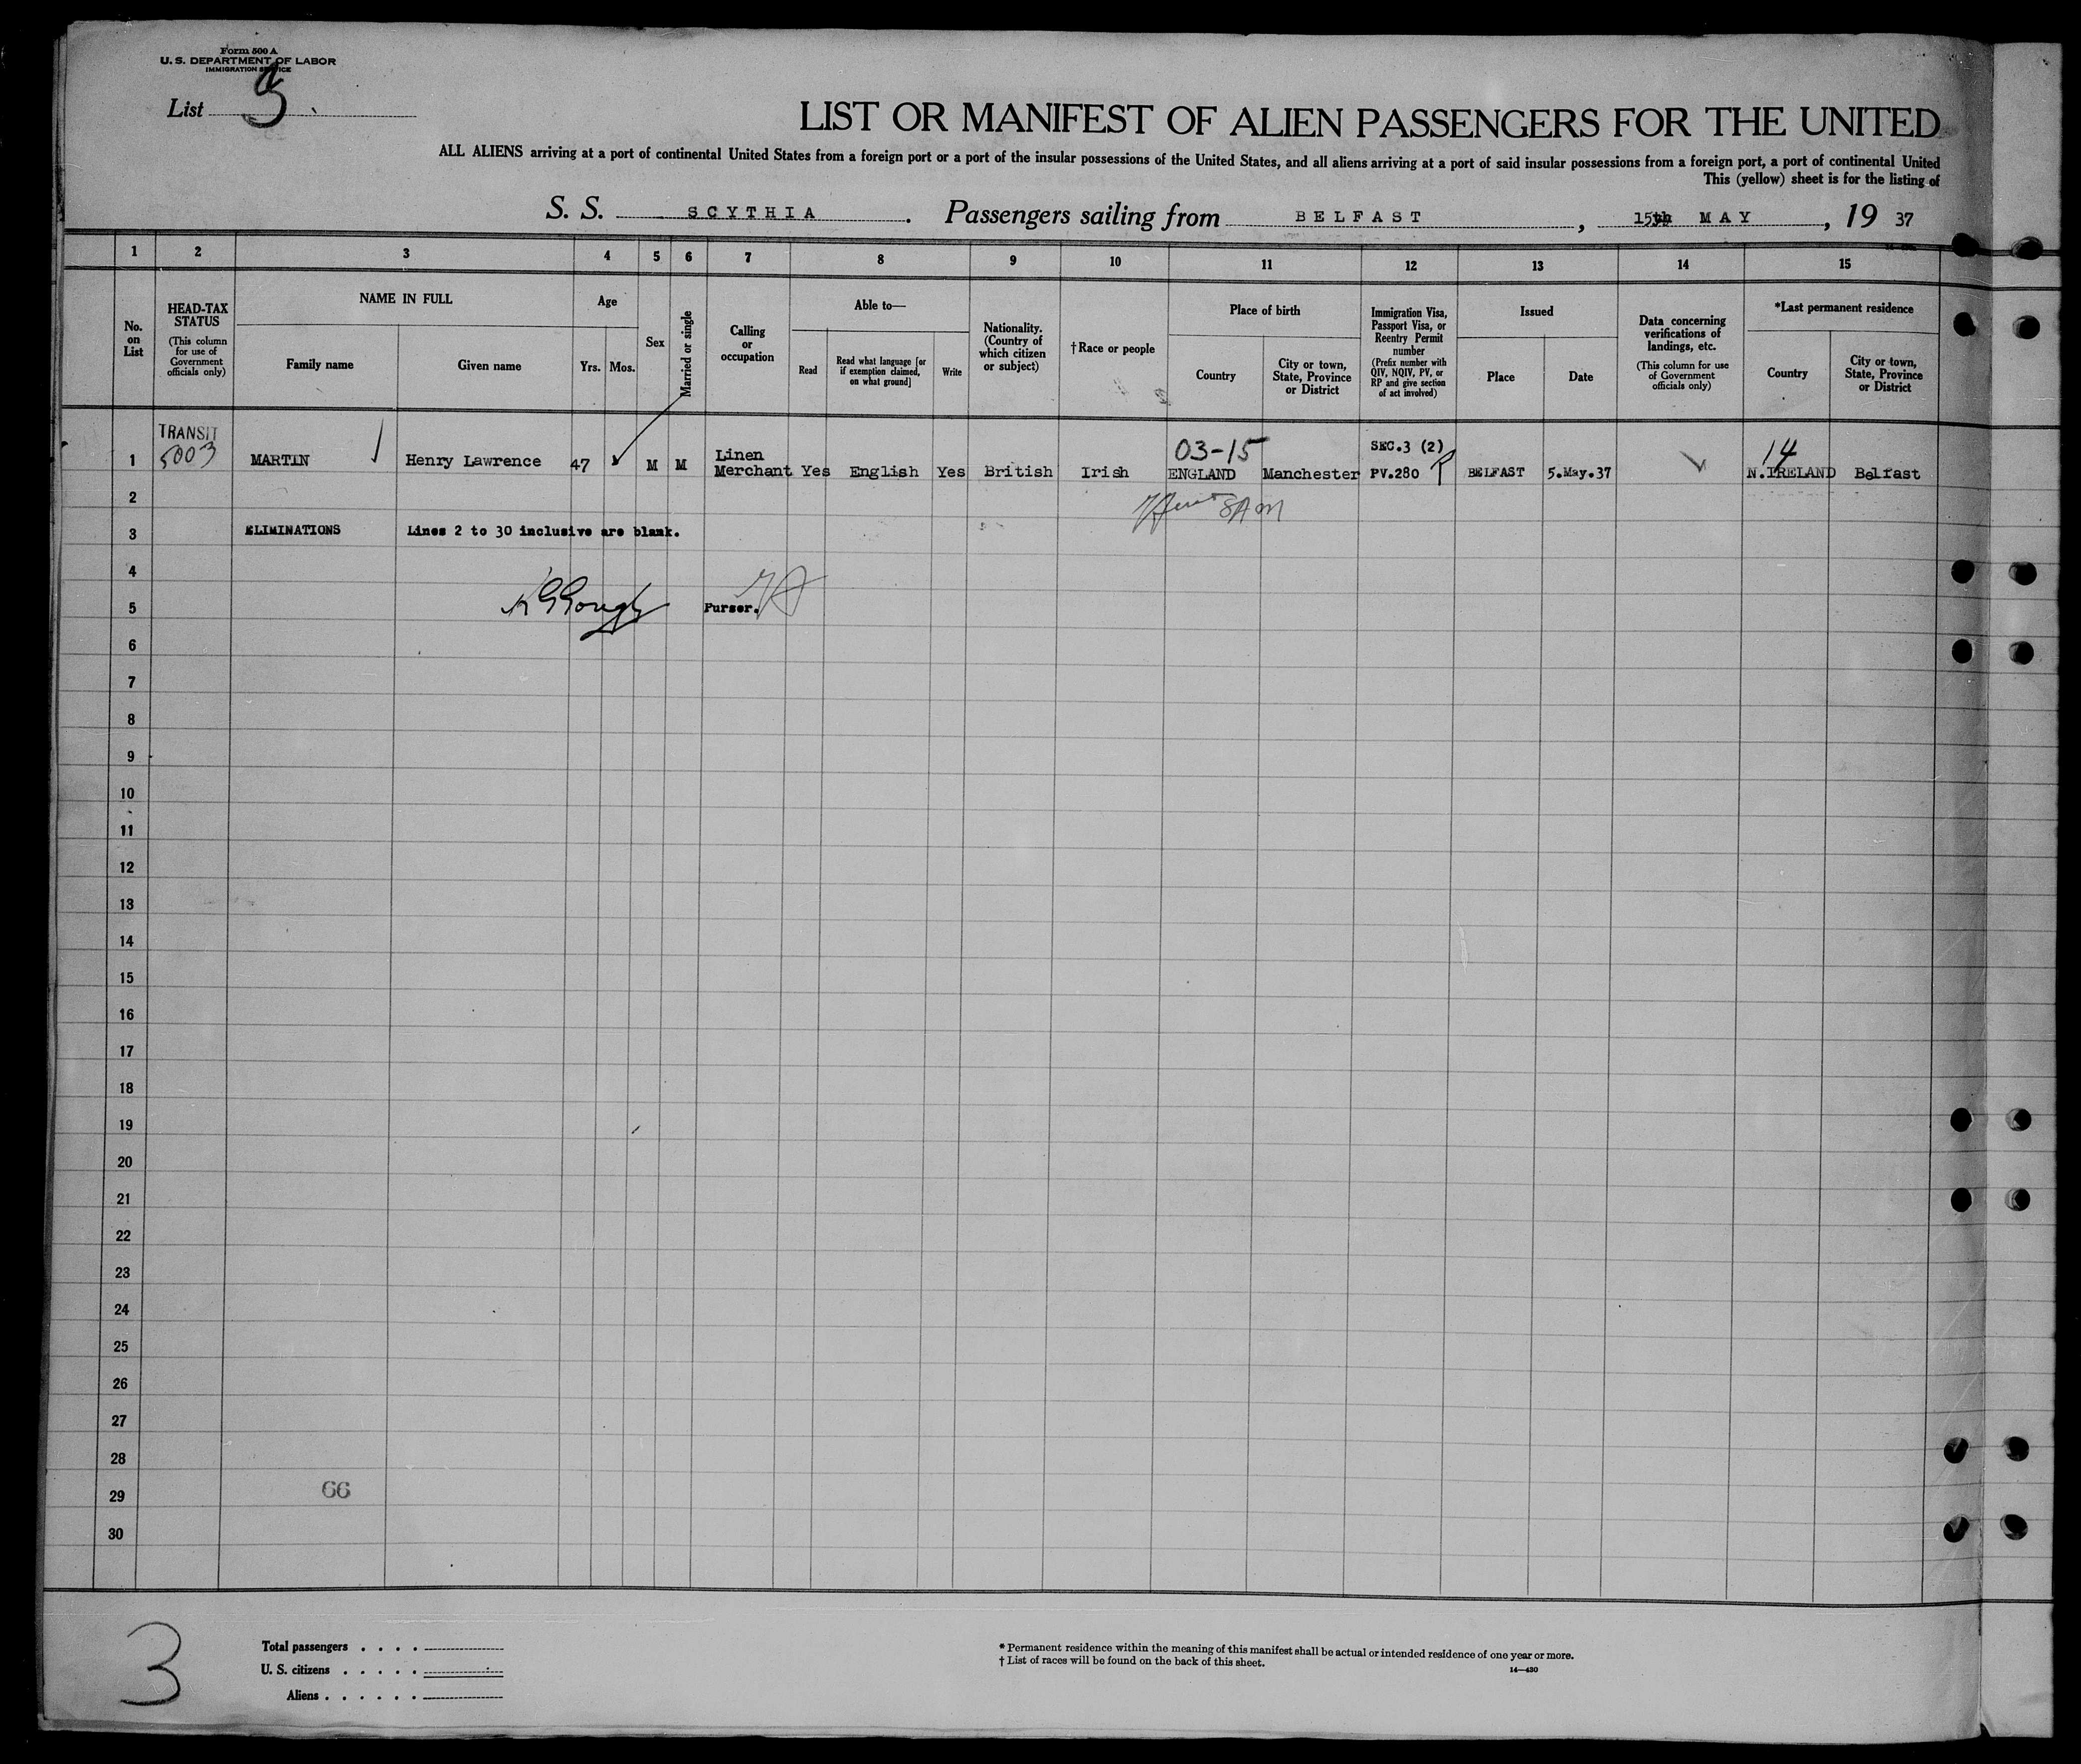 Form 500 A
U. S. DEPARTMENT OF LABOR
IMMIGRATION SERVICE
List 3
LIST OR MANIFEST OF ALIEN PASSENGERS FOR THE UNITED
ALL ALIENS arriving at a port of continental United States from a foreign port or a port of the insular possessions of the United States, and all aliens arriving at a port of said insular possessions from a foreign port, a port of continental United
This (yellow) sheet is for the listing of
S. S. SCYTHIA. Passengers sailing from BELFAST, 15th MAY, 19 37
1 2 3 4 5 6 7 8 9 10 11 12 13 14 15
No. on List
HEAD-TAX STATUS
(This column for use of Government officials only)
NAME IN FULL
Family name
Given name
Age
Yrs.
Mos.
Sex
Married or single
Calling or occupation
Able to—
Read
Read what language [or if exemption claimed, on what ground]
Write
Nationality. (Country of which citizen or subject)
†Race or people
Place of birth
Country
City or town, State, Province or District
Immigration Visa, Passport Visa, or Reentry Permit number
(Prefix number with QIV, NQIV, PV, or RP and give section of act involved)
Issued
Place
Date
Data concerning verifications of landings, etc.
(This column for use of Government officials only)
*Last permanent residence
Country
City or town, State, Province or District
TRANSIT
5003
03-15
SEC.3 (2)
14
1 MARTIN Henry Lawrence 47 M M Linen Merchant Yes English Yes British Irish ENGLAND Manchester PV.280 BELFAST 5.May.37 N.IRELAND Belfast
2
SAM
3 ELIMINATIONS Lines 2 to 30 inclusive are blank.
4
5 Purser.
6
7
8
9
10
11
12
13
14
15
16
17
18
19
20
21
22
23
24
25
26
27
28
66
29
30
3
Total passengers . . . .
U. S. citizens . . . . .
Aliens . . . . . .
* Permanent residence within the meaning of this manifest shall be actual or intended residence of one year or more.
† List of races will be found on the back of this sheet.
14—430